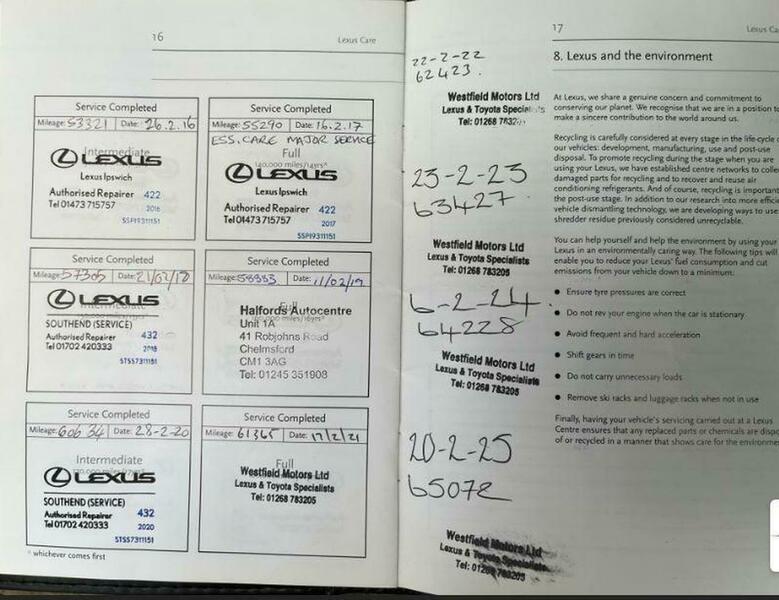 16
Lexus Care
Service Completed
Mileage: 53321 Date: 26.2.16
Intermediate
LEXUS
Lexus Ipswich
Authorised Repairer 422
Tel 01473 715757
2016
SSP19311151
Service Completed
Mileage: 55290 Date: 16.2.17
ESS. CARE MAJOR SERVICE
Full
140,000 miles/14yrs*
LEXUS
Lexus Ipswich
Authorised Repairer 422
Tel 01473 715757
2017
SSP19311151
Service Completed
Mileage: 57305 Date: 21/02/18
Intermediate
LEXUS
SOUTHEND (SERVICE)
Authorised Repairer 432
Tel 01702 420333
2018
STSS7311151
Service Completed
Mileage: 58983 Date: 11/02/19
Full
Halfords Autocentre
Unit 1A
41 Robjohns Road
Chelmsford
CM1 3AG
Tel: 01245 351908
Service Completed
Mileage: 60634 Date: 28-2-20
Intermediate
LEXUS
SOUTHEND (SERVICE)
Authorised Repairer 432
Tel 01702 420333
2020
STSS7311151
Service Completed
Mileage: 61365 Date: 17/2/21
Full
Westfield Motors Ltd
Lexus & Toyota Specialists
Tel: 01268 783205
* whichever comes first
22-2-22
62423.
Westfield Motors Ltd
Lexus & Toyota Specialists
Tel: 01268
23-2-23
63427.
Westfield Motors Ltd
Lexus & Toyota Specialists
Tel: 01268 783205
6-2-24.
64228
Westfield Motors Ltd
Lexus & Toyota Specialists
Tel: 01268 783205
20-2-25
65072
Westfield Motors Ltd
Lexus & Toyota Specialists
Tel: 01268 783205
17
Lexus Ca
8. Lexus and the environment
At Lexus, we share a genuine concern and commitment to
conserving our planet. We recognise that we are in a position to
make a sincere contribution to the world around us.
Recycling is carefully considered at every stage in the life-cycle o
our vehicles: development, manufacturing, use and post-use
disposal. To promote recycling during the stage when you are
using your Lexus, we have established centre networks to collec
damaged parts for recycling and to recover and reuse air
conditioning refrigerants. And of course, recycling is important
the post-use stage. In addition to our research into more effici
vehicle dismantling technology, we are developing ways to use
shredder residue previously considered unrecyclable.
You can help yourself and help the environment by using your
Lexus in an environmentally caring way. The following tips will
enable you to reduce your Lexus' fuel consumption and cut
emissions from your vehicle down to a minimum:
• Ensure tyre pressures are correct
• Do not rev your engine when the car is stationary
• Avoid frequent and hard acceleration
• Shift gears in time
• Do not carry unnecessary loads
• Remove ski racks and luggage racks when not in use
Finally, having your vehicle's servicing carried out at a Lexus
Centre ensures that any replaced parts or chemicals are dispo
of or recycled in a manner that shows care for the environme